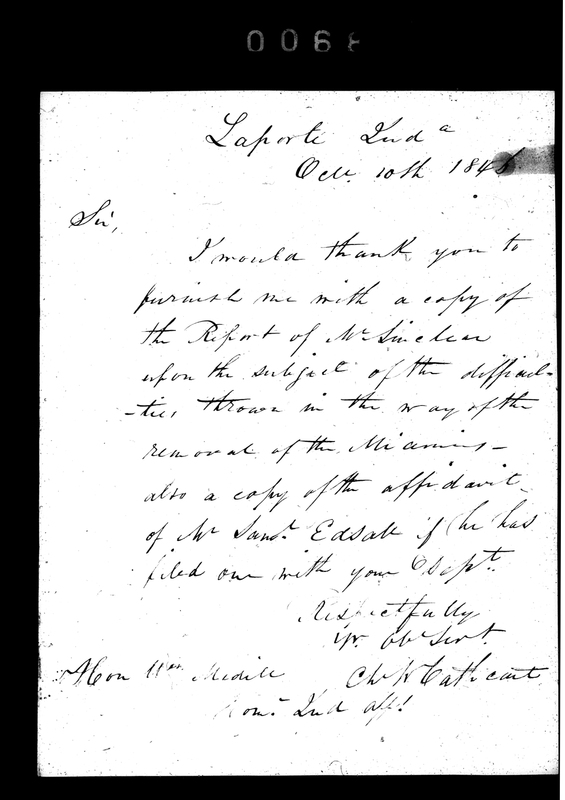 0068
Laporte Ind a
Oct. 10th 184
Sir,
I would thank you to
furnish me with a copy of
the Report of Mr Sinclear
upon the subject of the difficul-
-ties thrown in the way of the
removal of the Miamis –
also a copy of the affidavit
of Mr Saml. Edsall if he has
filed one with your Dept.
Respectfully
Yr. Obt Servt.
Chs W Cathcart
Hon Wm Medill
Comr Ind aff!